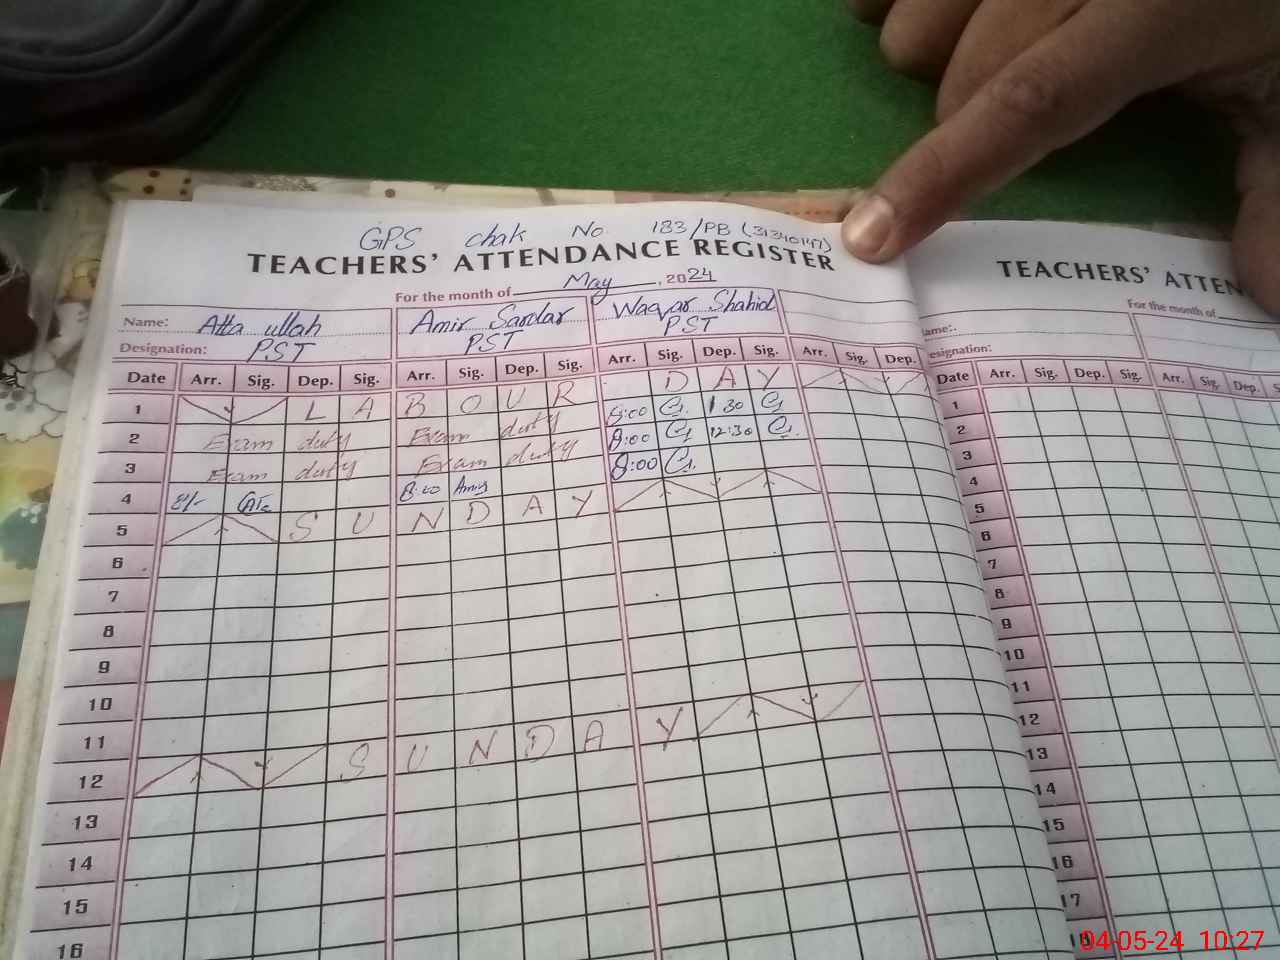 GPS chak No 183/PB (31340147)
TEACHERS' ATTENDANCE REGISTER
For the month of May, 2024
Name: Atta ullah Amir Sardar Waqar Shahid
Designation: PST PST PST
Date Arr. Sig. Dep. Sig. Arr. Sig. Dep. Sig. Arr. Sig. Dep. Sig. Arr. Sig. Dep.
1 L A B O U R D A Y
2 Exam duty Exam duty 8:00 1:30
3 Exam duty Exam duty 8:00 12:30
4 8/- 8:00 Amir 8:00
5 S U N D A Y
6
7
8
9
10
11
12 S U N D A Y
13
14
15
16
TEACHERS' ATTEN
For the month of
ame:
esignation:
Date Arr. Sig. Dep. Sig. Arr. Sig. Dep. S
1
2
3
4
5
6
7
8
9
10
11
12
13
14
15
16
17
04-05-24 10:27